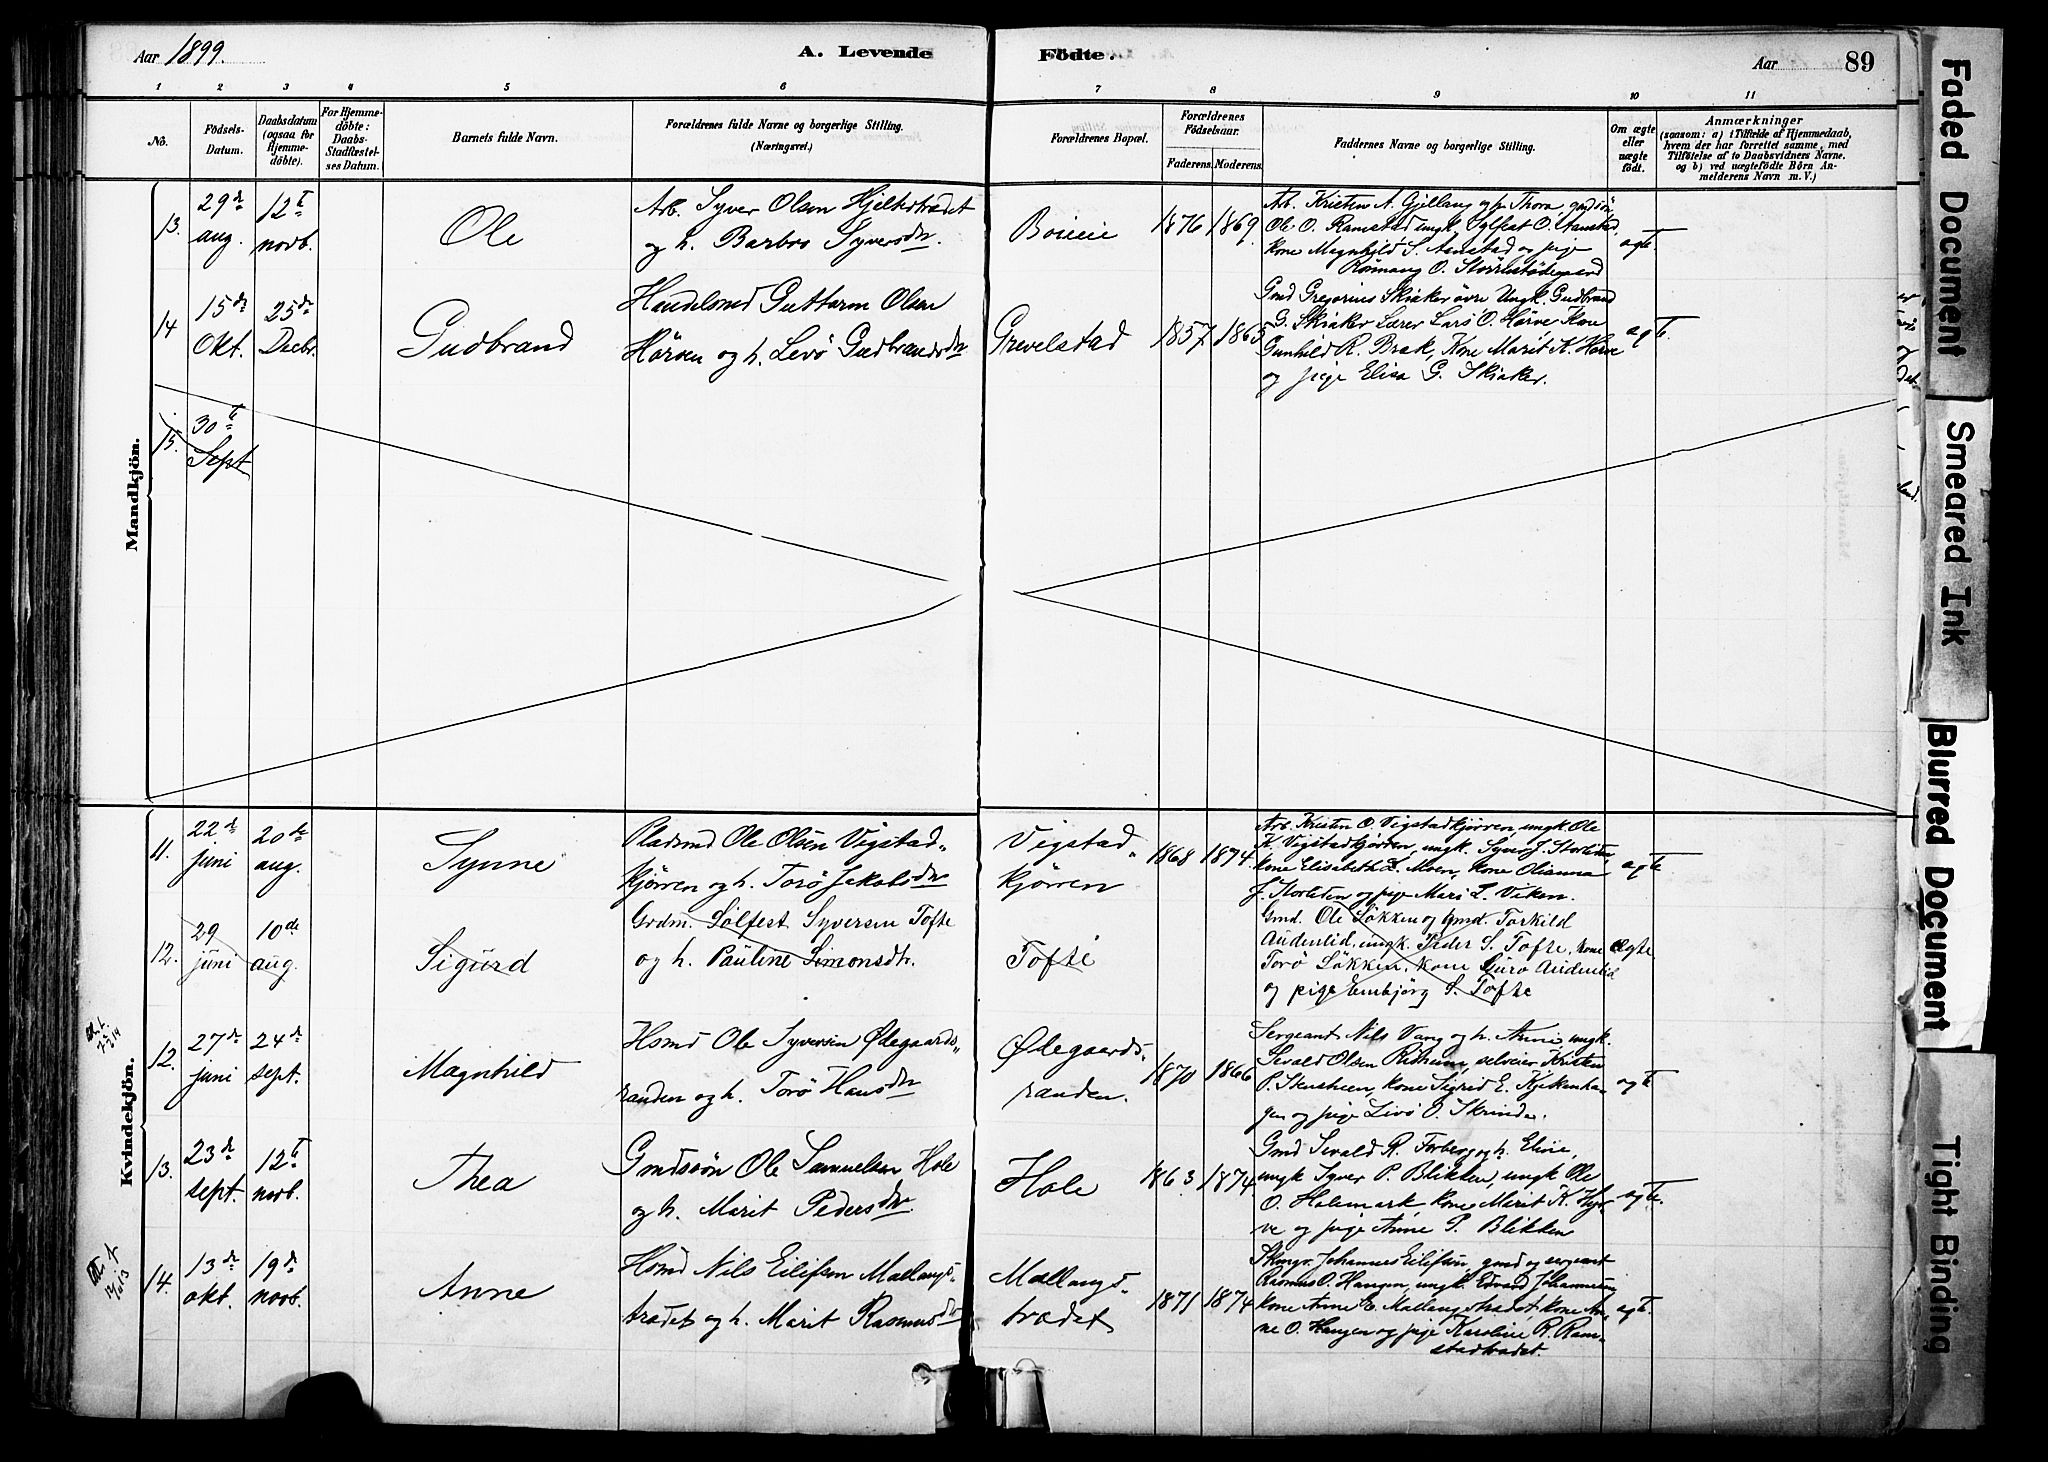 Aar 1899.
A. Levende
Födte.
Aar
89
1 2 3 4 5 6 7 8 9 10 11
No.
Födsels-
Datum.
Daabsdatum
(ogsaa for
Hjemme-
döbte).
For Hjemme-
döbte:
Daabs-
Stadfæstel-
ses Datum.
Barnets fulde Navn.
Forældrenes fulde Navne og borgerlige Stilling.
(Næringsvei.)
Forældrenes Bopæl.
Forældrenes
Födselsaar.
Faderens.
Moderens.
Faddernes Navne og borgerlige Stilling.
Om ægte
eller
uægte
født.
Anmærkninger
(saasom: a) i Tilfælde af Hjemmedaab,
hvem der har forrettet samme, med
Tilföielse af to Daabsvidners Navne.
og b) ved uægtefödte Börn An-
melderens Navn m. V.)
Mandkjön.
13.
29de
aug.
12te
novb.
Ole
Arb. Syver Olsen Hjeltstrædet
og h. Barbro Syversdtr.
1876
1869.
Arb. Kristen A. Gjellang og h. Thora, gmdsön
Ole O. Ramstad ungk. Sylfest O. Aanstad,
kone Magnhild S. Aanstad og pige
O.
ægte.
14
15de
Okt.
25de
Decbr.
Gudbrand
Handelsmd Guttorm Olsen
Hörven og h. Livö Gudbrandsdtr
Grevelstad
1857
1865
Gmd Gregorius Skiaker övre Ungk. Gudbrand
G. Skiaker Lærer Lars O. Hörve Kone
Gunhild R. Brek, Kone Marit K. Hörve
og pige Elisa G. Skiaker.
ægte.
15.
30te
Sept
Kvindekjön.
11.
22de
juni
20de
aug.
Synne
Pladsmd Ole Olsen Vigstad-
kjørren og h. Torö Jakobsdtr
Vigstad-
kjørren
1868
1874.
Arb. Kristen O. Vigstadkjørren, ungk. Ole
K. Vigstadkjørren, ungk. Syver J. Storlien,
kone Elisabeth L. Moen, kone Olianna
J. Storlien og pige Mari L. Viken.
ægte
12.
29
juni
10de
aug.
Sigurd
Grdm. Sølfest Syversen Tofte
og h. Pauline Simonsdt.
Tofte
Gmd. Ole Løkken og Gmd. Torkild
Audenlid, ungk. Peder S. Tofte, kone
Torö Løkken, kone Guro Audenlid
og pige Embjörg S. Tofte
ægte
12.
27de
juni
24de
sept.
Magnhild
Hsmd Ole Syversen Ødegaards-
randen og h. Torö Hansdtr
Ødegaards-
randen.
1870
1866
Sergeant Nils Vang og h. Anne, ungk.
Sevald Olsen Ridheim, selveier Kristen
P. Stensheen, kone Sigrid E. Kjekenha-
gen og pige Livö O. Skrinde.
ægte
13.
23de
sept.
12te
novb.
Thea
Gmdssön Ole Samuelsen Hole
og h. Marit Pedersdtr.
Hole
1863
1874
Gmd Sevald R. Forberg og h. Eline,
ungk Syver P. Blikken, ungk Ole
O. Holemark kone Marit K. Hyr-
ve og pige Anne P. Blikken
ægte.
14.
13de
okt.
19de
novb.
Anne
Hsmd Nils Eilifsen Mallangs-
trædet og h. Marit Rasmusdtr
Mallangs-
trædet
1871
1874
Johannes Eilifsen, gmd og sergeant
Rasmus O. Haugen, ungk. Edvard Johannesen,
kone Anne E. Mallangstrædet, kone An-
ne O. Haugen og pige Karoline R. Ram-
stadtrædet.
ægte.
Faded Document
Smeared Ink
Blurred Document
Tight Binding